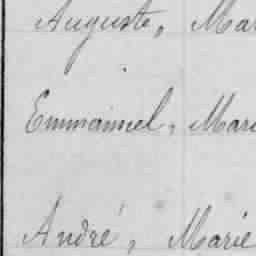 Auguste, Mar
Emmanuel, Mari
André, Marie